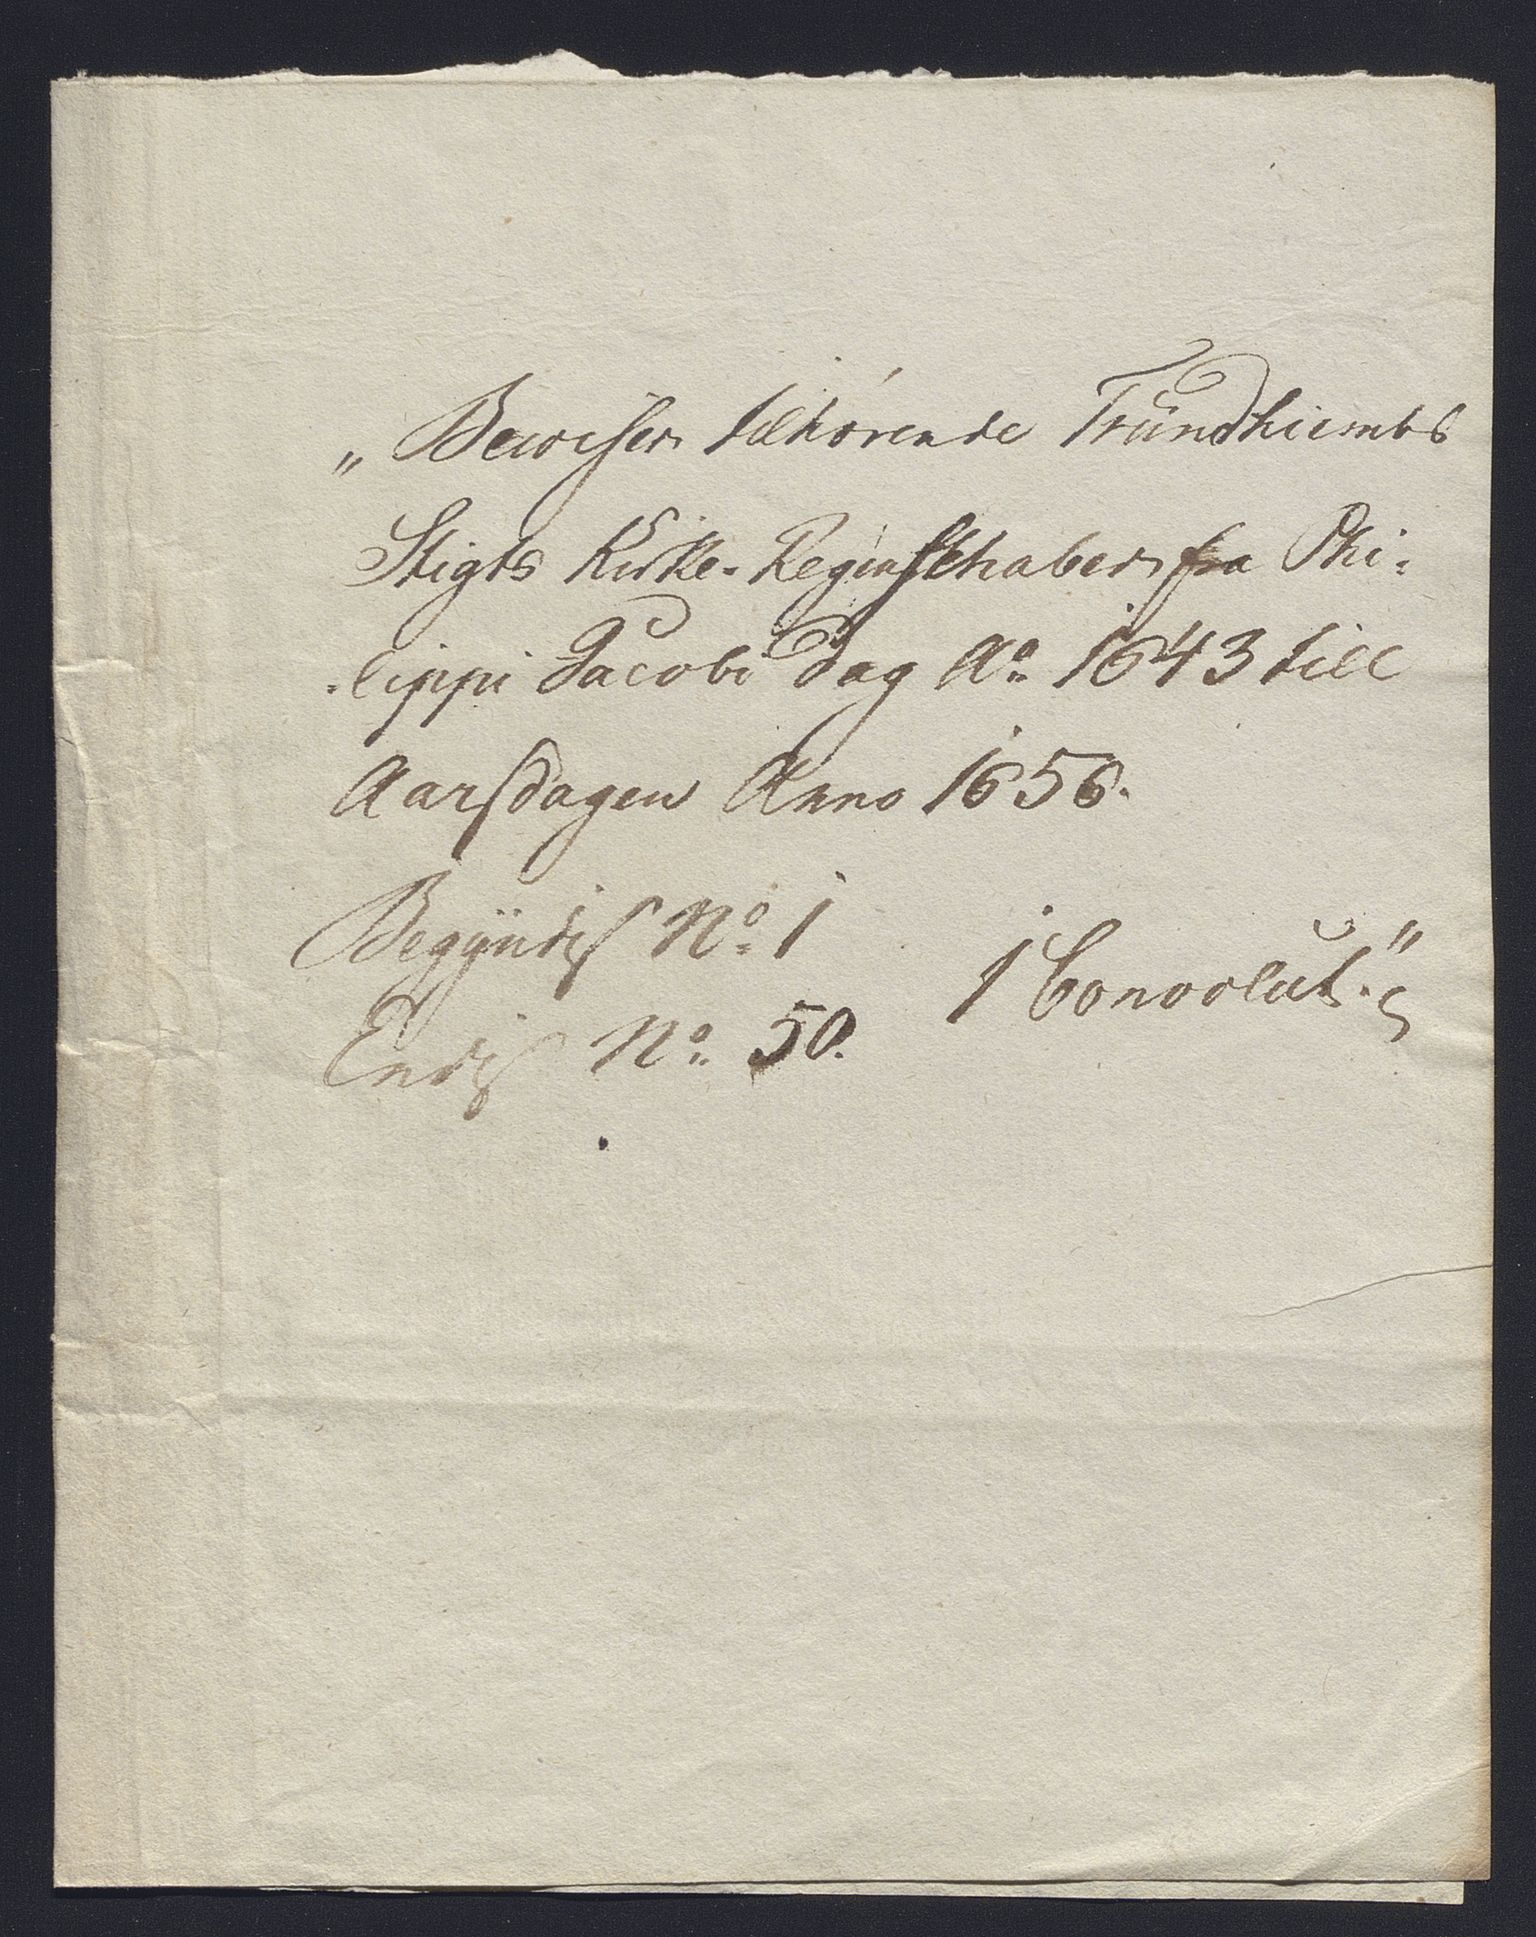 „Bewiser tilhörende Trundhiembs
Stigts Kirke-Regenskaber fra Phi-
lippi Jacobi Dag Ao. 1643 till
Aarsdagen Anno 1656.
Begÿndis No. 1
1 Convolut."
Endis No. 50.